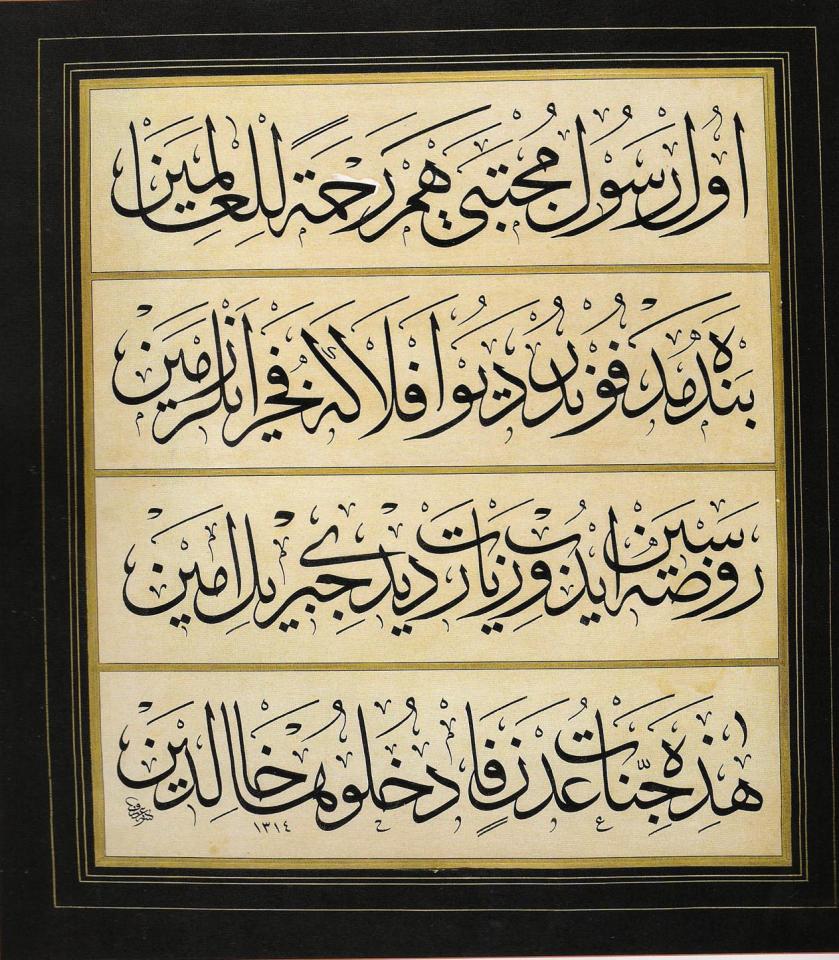 اول رسول مجتبى هم رحمة للعالمين
بنده مدفوندر ديو افلاكه فخر ايلر زمين
روضه سين ايدوب زيارت ديدى جبريل امين
هذه جنات عدن فادخلوها خالدين
١٣١٤